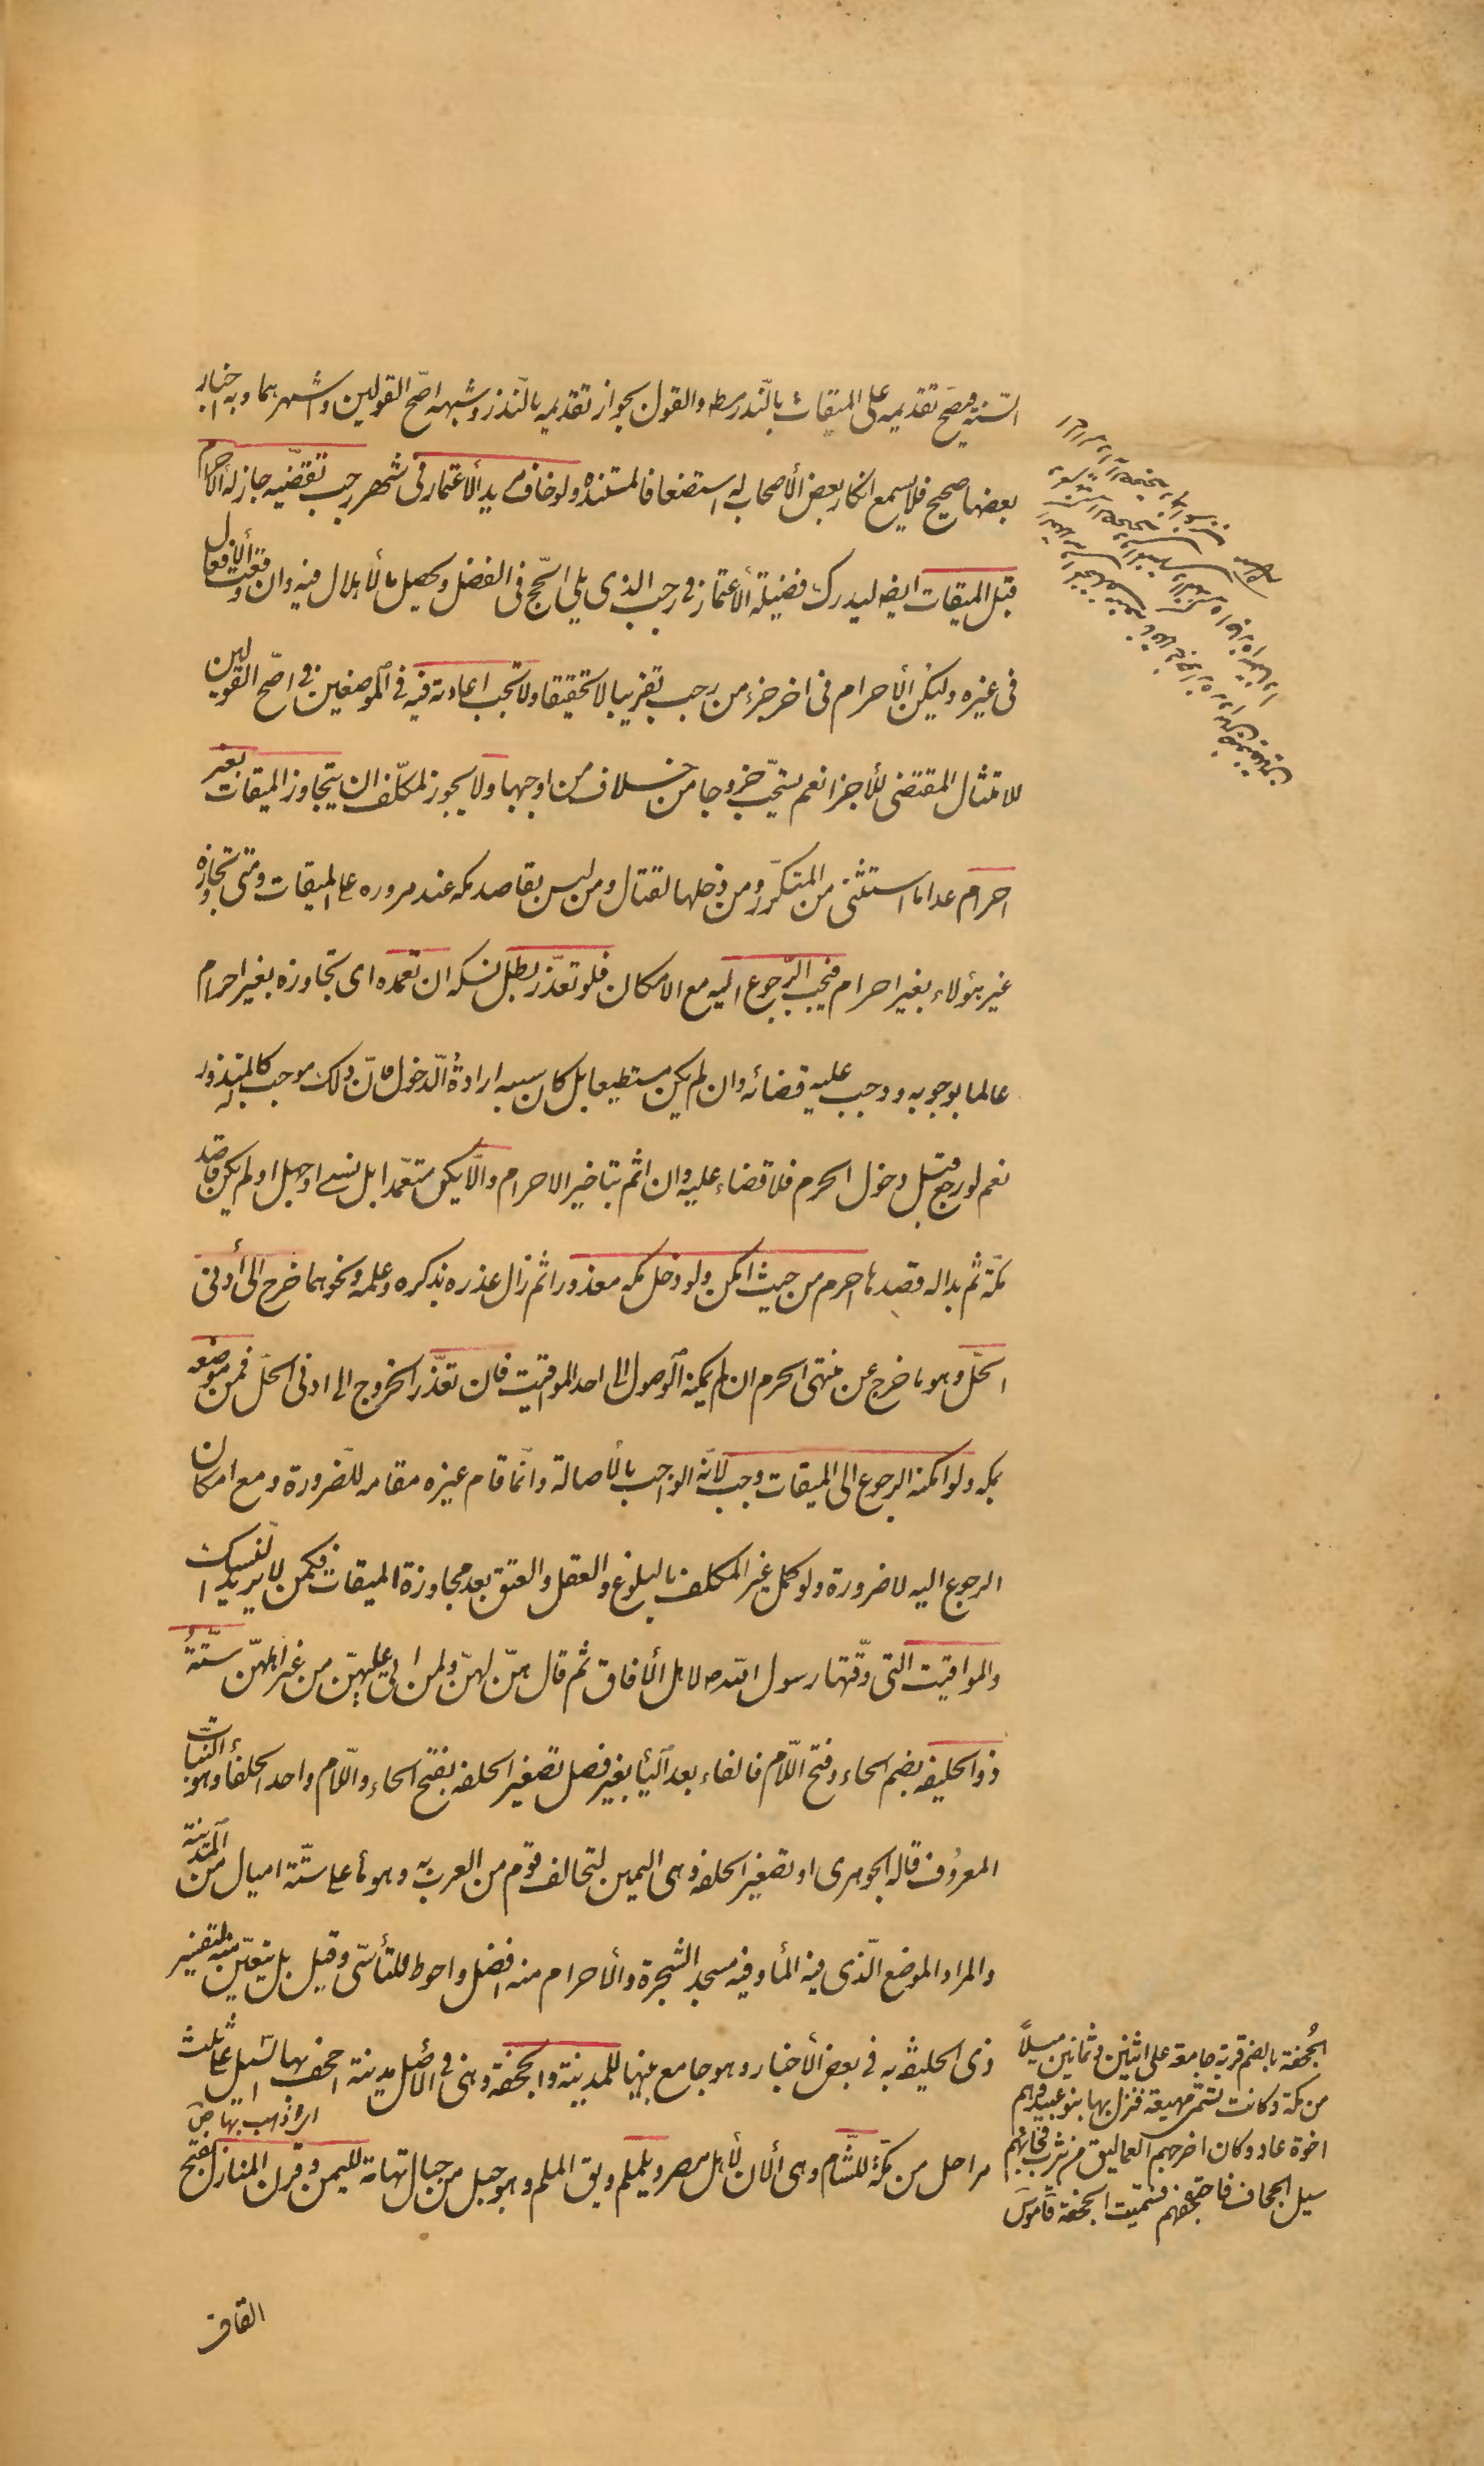 السّنة فيصحّ تقديمه على الميقات بالنّذر والقول بجواز تقديمه بالنّذر وشبهه اصّح القولين واشهرهما وبه اخبار
بعضها صحيح فلا يسمع انكار بعض الأصحاب له استضعافا لمستنده ولو خاف مريد الأعتمار فى شهر رجب تقضّيه جاز له الأحرام
قبل الميقات ايضا ليدرك فضيلة الأعتمار فى رجب الذى يلى الحّج فى الفضل ويحصل بالأهلال فيه وان وقعت الأفعال
فى غيره وليكن الأحرام فى اخر جزء من رجب تقريبا لا تحقيقا ولا تجب اعادته فيه فى الموضعين فى اصّح القولين
للامتثال المقتضى للأجزا نعم يستحّب خروجا من خلاف من اوجبها ولا يجوز لمكلّف ان يتجاوز الميقات بغير
احرام عدا ما استثنى من المتكرّر ومن دخلها لقتال ومن ليس بقاصد مكه عند مروره على الميقات ومتى تجاوزه
غير هؤلاء بغير احرام فيجب الرّجوع اليه مع الامكان فلو تعذّر بطل نسكه ان تعمده اى تجاوزه بغير احرام
عالما بوجوبه ووجب عليه قضائه وان لم يكن مستطيعا بل كان سببه ارادة الدّخول فانّ ذلك موجب له كالمنذور
نعم لو رجع قبل دخول الحرم فلا قضاء عليه وان اثم بتاخير الاحرام والّا يكن متعمّدا بل نسى او جهل او لم يكن قاصد
مكّة ثم بدا له قصدها احرم من حيث امكن ولو دخل مكه معذورا ثم زال عذره بذكره وعلمه ونحوهما خرج الى أدنى
الحلّ وهو ما خرج عن منتهى الحرم ان لم يمكنه الوصول الى احد المواقيت فان تعذّر الخروج الى ادنى الحلّ فمن موضعه
بمكه ولو امكنه الرجوع الى الميقات وجب لانّه الواجب بالأصالة وانّما قام غيره مقامه للّضرورة ومع امكان
الرجوع اليه لا ضرورة ولو كمل غير المكلف بالبلوغ والعقل والعتق بعد مجاوزة الميقات فكمن لا يريد النّسك
والمواقيت التى وقّتها رسول اللّه ص لاهل الأفاق ثم قال هنّ لهنّ ولمن اتى عليهنّ من غير اهلهنّ ستّة
ذو الحليفه بضم الحاء وفتح اللّام فالفاء بعد اليأ بغير فصل تصغير الحلفه بفتح الحاء واللّام واحد الحلفأ وهو النّبات
المعروف قاله الجوهرى او تصغير الحلفه وهى اليمين لتحالف قوم من العرب به وهو ما على ستّة اميال من المدينة
والمراد الموضع الّذى فيه المأ وفيه مسجد الشجرة والأحرام منه افضل واحوط للتأسّى وقيل بل يتعيّن منه لتفسير
ذى الحليفه به فى بعض الأخبار وهو جامع بينها للمدينة والجحفة وهى فى الأصل مدينة اجحف بها السّيل على ثلث
اى ذهب بها ص
مراحل من مكّة للشّام وهى ألان لأهل مصر ويلملم ويق الملم وهو جبل من جبال تهامة لليمن وقرن المنازل بفتح
الجُحفة بالضم قرية جامعة على اثنين وثمانين ميلاً
من مكّة وكانت تسمّى مهيعة فنزل بها بنو عبيد وهم
اخوة عاد وكان اخرجهم العماليق من يثرب فجائهم
سيل الجحاف فاجتحفهم فسّميت الجحفة قاموس
القاف